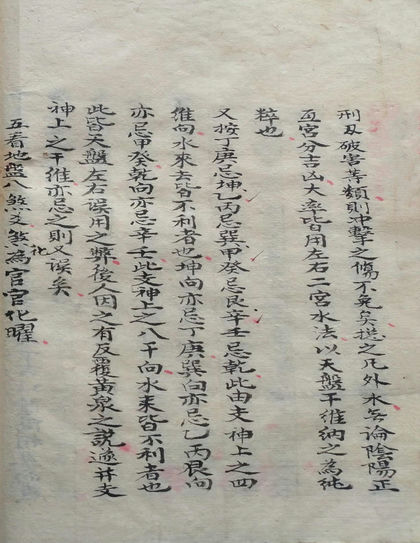 刑丑破害等類則冲擊之傷不免矣摠之凡外水無論陰陽正
互宮分吉凶大率皆用左右二宮水法以天盤干維納之為純
粹也
又按丁庚忌坤乙丙忌巽甲癸忌艮辛壬忌乾此由支神上之四
維向水來去皆不利者也坤向亦忌丁庚巽向亦忌乙丙艮向
亦忌甲癸乾向亦忌辛壬此支神上之八干向水来皆不利者也
此皆天盤左右误用之弊後人因之有反覆黄泉之説遂并支
神上之干維亦忌之則又误矣
五看地盤八煞又煞化為官官化曜